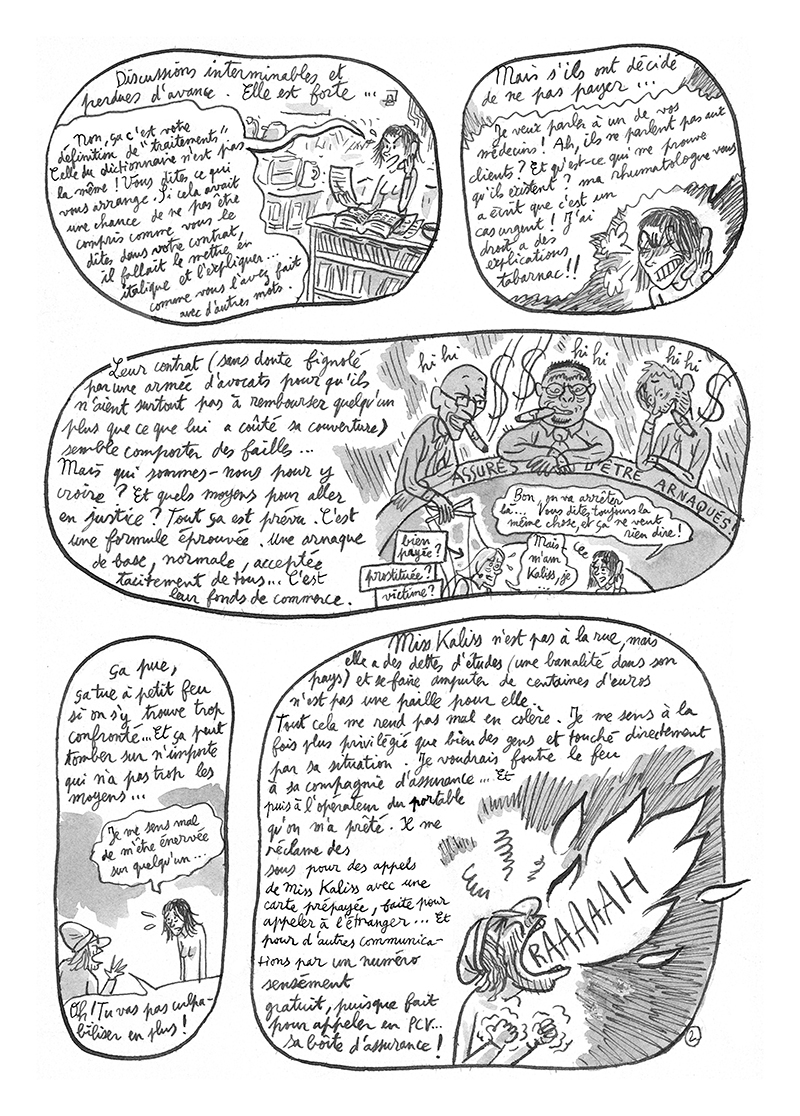 Discussions interminables et
perdues d'avance. Elle est forte...
Non, ça c'est votre
définition de "traitements"
Celle du dictionnaire n'est pas
la même ! Vous dites ce qui
vous arrange. Si cela avait
une chance de ne pas être
compris comme vous le
dites dans votre contrat,
il fallait le mettre en
italique et l'expliquer...
comme vous l'avez fait
avec d'autres mots.
Mais s'ils ont décidé
de ne pas payer...
Je veux parler à un de vos
médecins ! Ah, ils ne parlent pas aux
clients ? Et qu'est-ce qui me prouve
qu'ils existent ? ma rhumatologue vous
a écrit que c'est un
cas urgent ! J'ai
droit à des
explications
tabarnac !!
Leur contrat (sans doute fignolé
par une armée d'avocats pour qu'ils
n'aient surtout pas à rembourser quelqu'un
plus que ce que lui a coûté sa couverture)
semble comporter des failles...
Mais qui sommes-nous pour y
croire ? Et quels moyens pour aller
en justice ? Tout ça est prévu. C'est
une formule éprouvée. Une arnaque
de base, normale, acceptée
tacitement de tous... C'est
leur fonds de commerce.
hi hi
hi hi
hi hi
$ $ $ $
ASSURÉS D'ÊTRE ARNAQUÉS
Bon, on va arrêter
là... Vous dites toujours la
même chose, et ça ne veut
rien dire !
bien
payée ?
prostituée ?
victime ?
Mais
m'am
Kaliss, je
Ce
Ça pue,
ça tue à petit feu
si on s'y trouve trop
confronté... Et ça peut
tomber sur n'importe
qui n'a pas trop les
moyens...
Je me sens mal
de m'être énervée
sur quelqu'un...
Oh ! Tu vas pas culpa-
biliser en plus !
Miss Kaliss n'est pas à la rue, mais
elle a des dettes d'études (une banalité dans son
pays) et se faire amputer de centaines d'euros
n'est pas une paille pour elle..
Tout cela me rend pas mal en colère. Je me sens à la
fois plus privilégié que bien des gens et touché directement
par sa situation. Je voudrais foutre le feu
à sa compagnie d'assurance... Et
puis à l'opérateur du portable
qu'on m'a prêté. Il me
réclame des
sous pour des appels
de Miss Kaliss avec une
carte prépayée, faite pour
appeler à l'étranger... Et
pour d'autres communica-
tions par un numéro
sensément
gratuit, puisque fait
pour appeler en PCV...
sa boîte d'assurance !
RAAAAAH
2